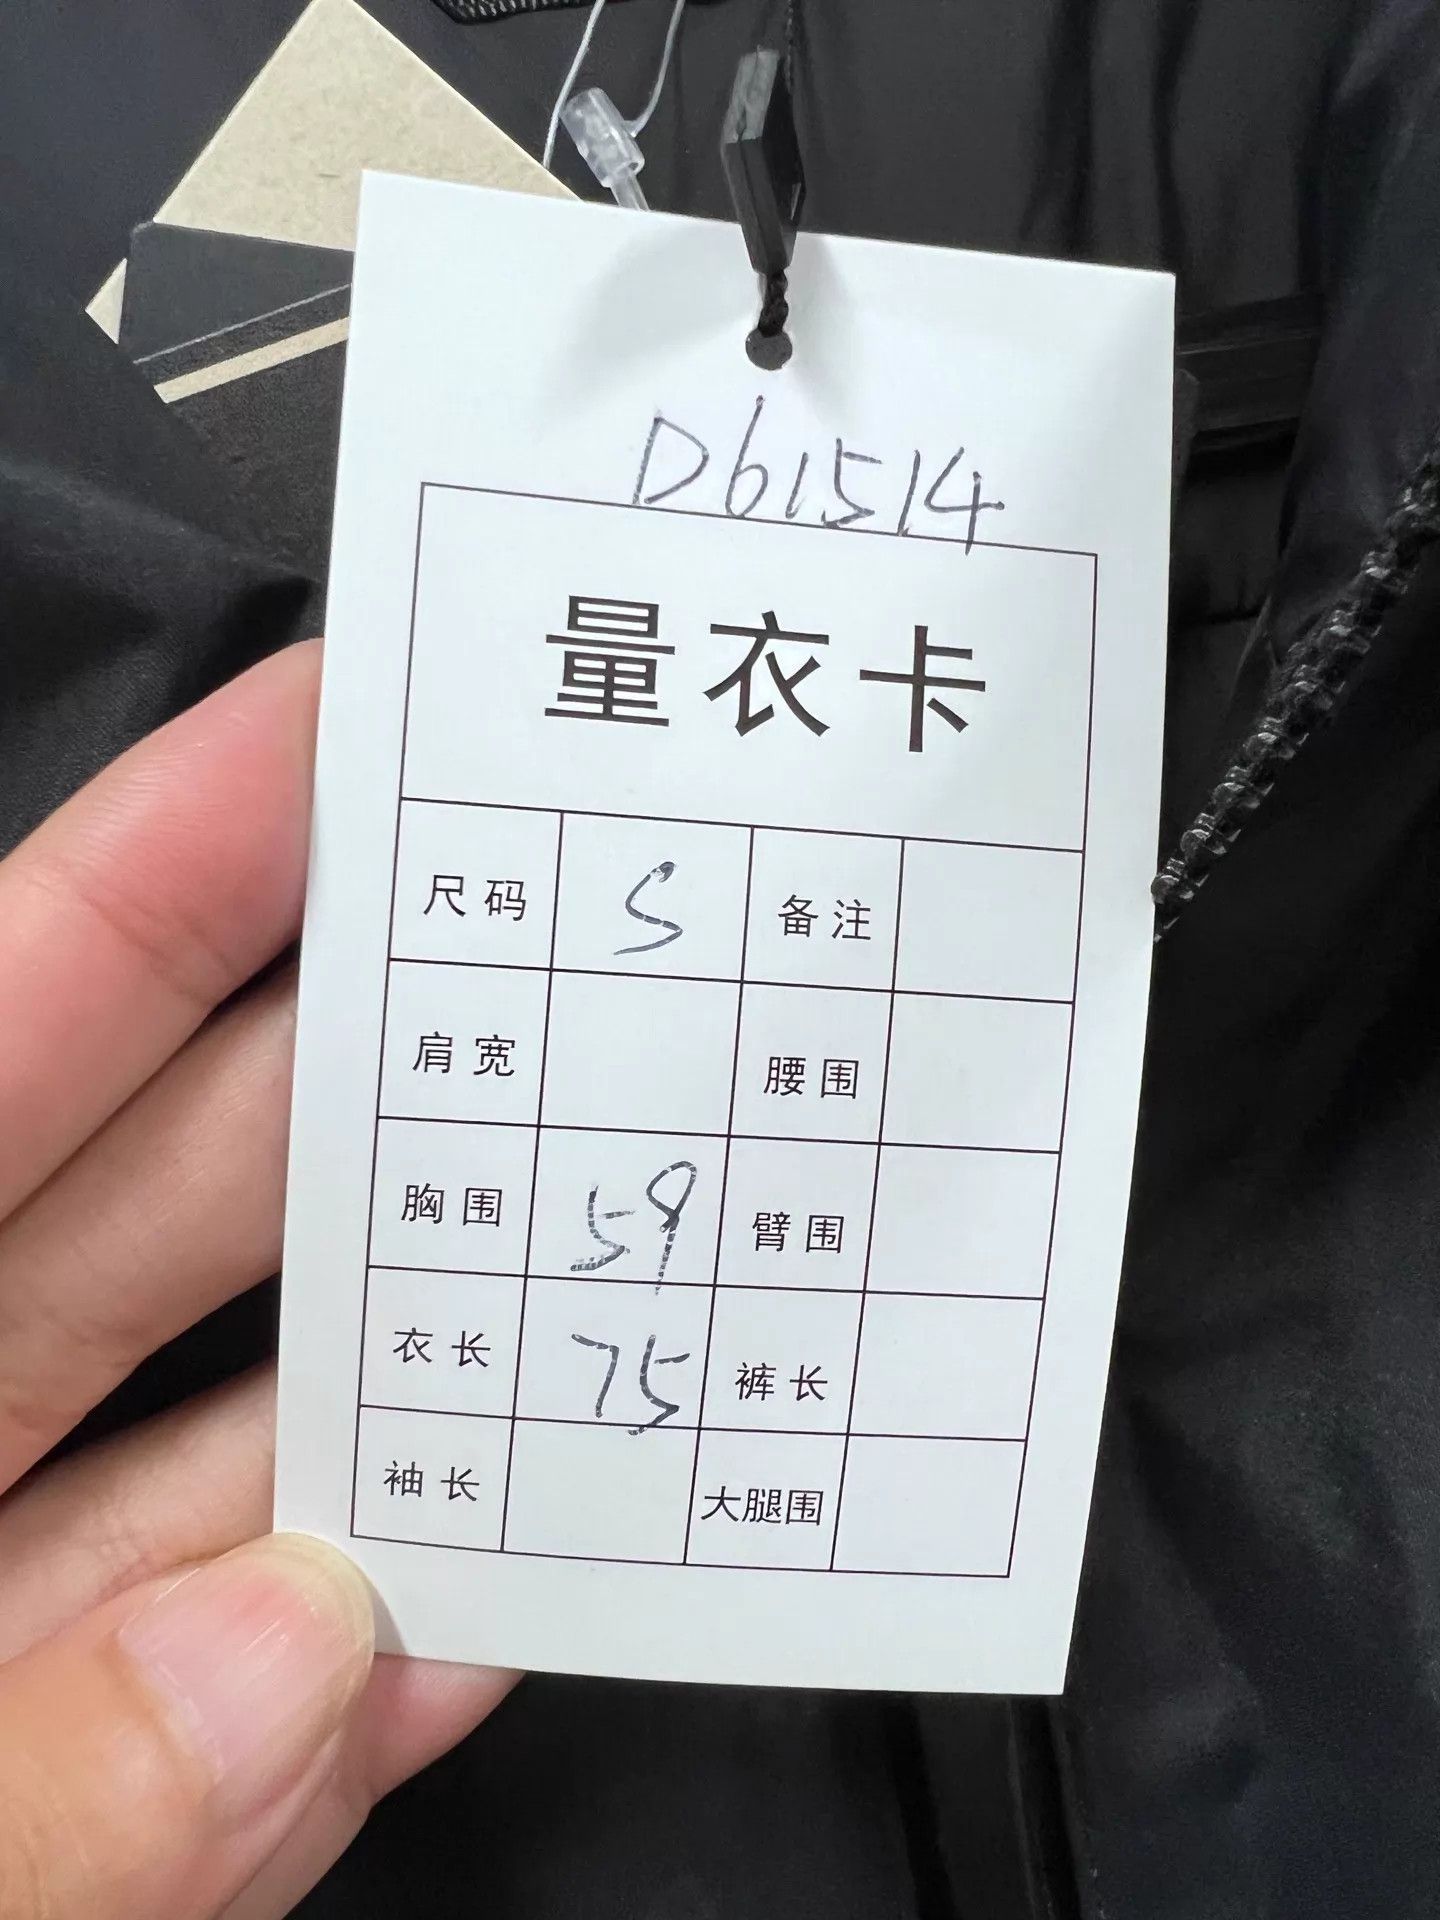 D61514
量衣卡
尺码 S 备注
肩宽 腰围
胸围 59 臂围
衣长 75 裤长
袖长 大腿围